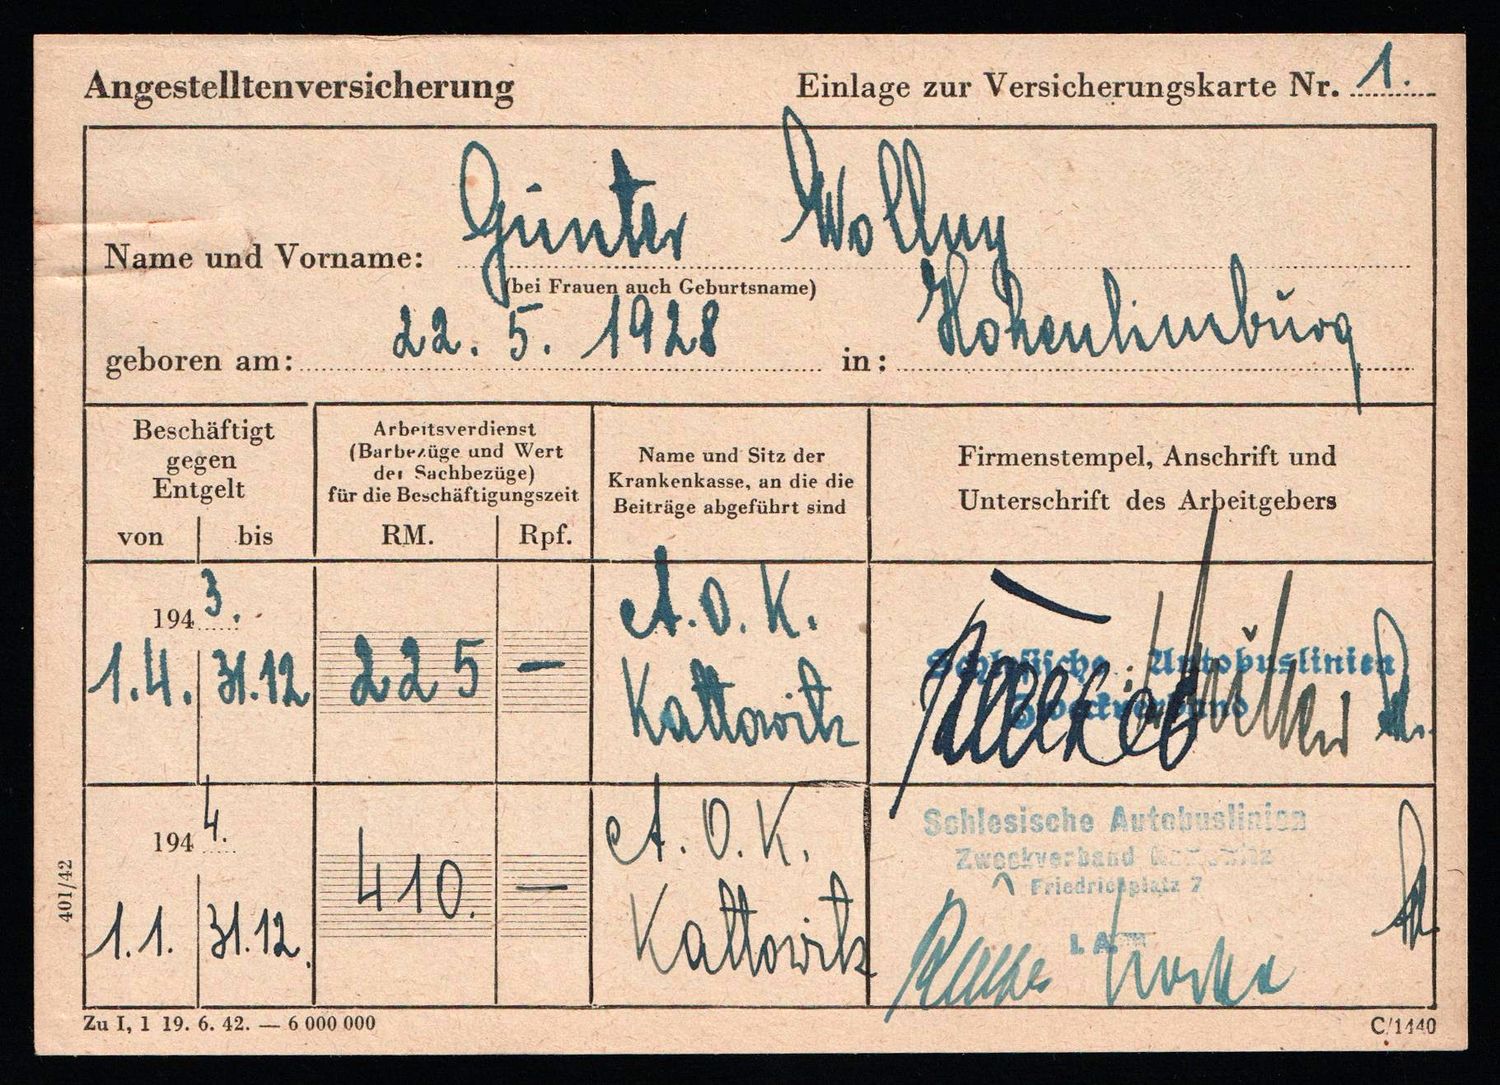 Angestelltenversicherung
Einlage zur Versicherungskarte Nr. 1.
Name und Vorname: Günter Wollny
(bei Frauen auch Geburtsname)
geboren am: 22. 5. 1928 in: Hohenlimburg
Beschäftigt
gegen
Entgelt
von bis
Arbeitsverdienst
(Barbezüge und Wert
der Sachbezüge)
für die Beschäftigungszeit
RM. Rpf.
Name und Sitz der
Krankenkasse, an die die
Beiträge abgeführt sind
Firmenstempel, Anschrift und
Unterschrift des Arbeitgebers
1943.
1.4. 31.12
225 —
A.O.K.
Kattowitz
Schlesische Autobuslinien
Zweckverband
1944.
1.1. 31.12.
410. —
A.O.K.
Kattowitz
Schlesische Autobuslinien
Zweckverband Kattowitz
Friedrichplatz 7
I. A.
401/42
Zu I, 1 19. 6. 42. — 6 000 000
C/1440